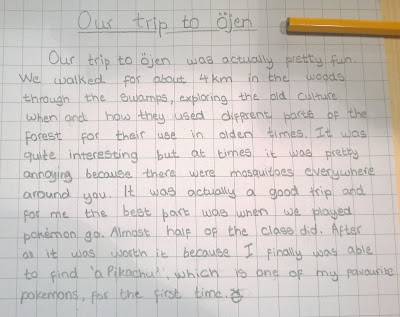 Our trip to öjen
Our trip to öjen was actually pretty fun.
We walked for about 4km in the woods
through the swamps, exploring the old culture
when and how they used different parts of the
forest for their use in olden times. It was
quite interesting but at times it was pretty
annoying because there were mosquitoes everywhere
around you. It was actually a good trip and
for me the best part was when we played
pokémon go. Almost half of the class did. After
as it was worth it because I finally was able
to find 'a Pikachu', which is one of my favourite
pokemons, for the first time.